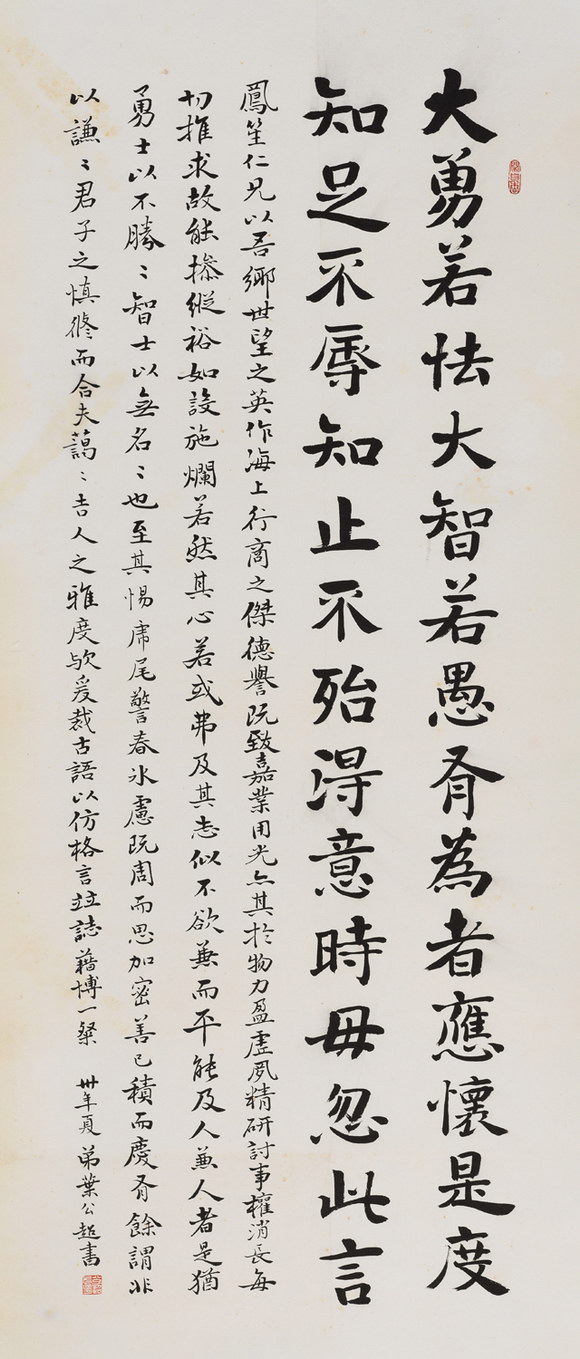 大勇若怯大智若愚有為者應懷是度
知足不辱知止不殆得意時毋忽此言
鳳笙仁兄以吾鄉世望之英作海上行商之傑德譽既致嘉業用光亦其於物力盈虛夙精研討事權消長每
切推求故能操縱裕如設施爛若然其心若或弗及其志似不欲兼而平能及人兼人者是猶
勇士以不勝〻智士以無名〻也至其惕席尾警春冰慮既周而思加密善已積而慶有餘謂非
以謙〻君子之慎修而合夫藹〻吉人之雅度歟爰裁古語以仿格言並誌藉博一粲
卅年夏 弟葉公超書